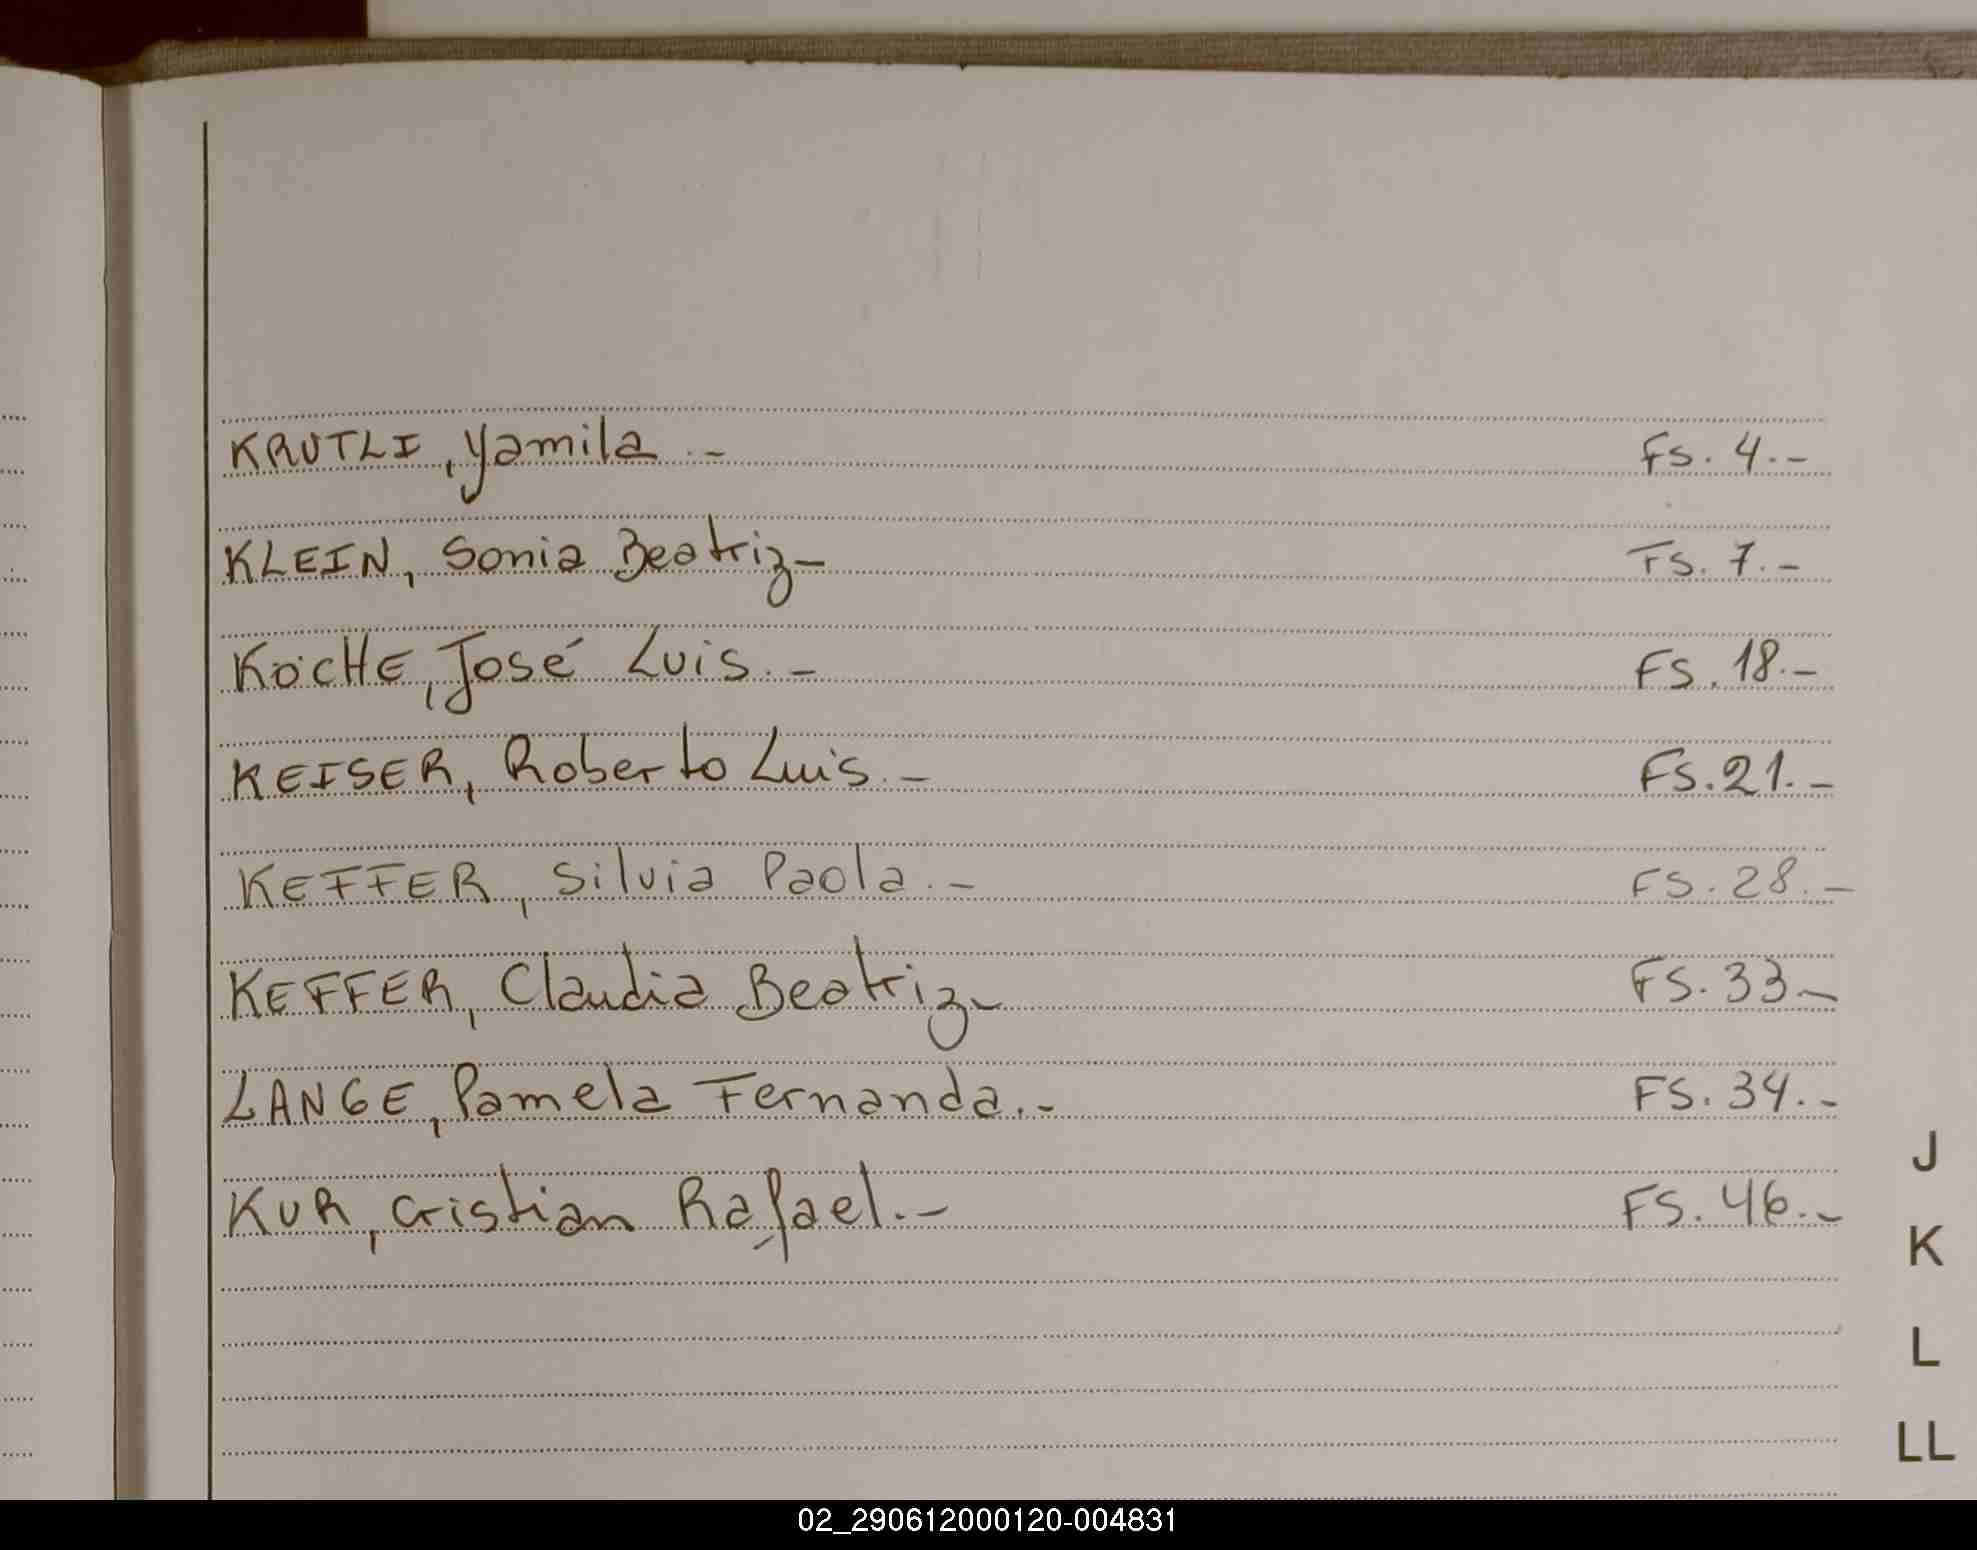 KRUTLI, Yamila.- Fs. 4.-
KLEIN, Sonia Beatriz- Fs. 7.-
KOCHE, José Luis.- FS. 18.-
KEISER, Roberto Luis.- FS. 21.-
KEFFER, Silvia Paola.- FS. 28.-
KEFFER, Claudia Beatriz- FS. 33.-
LANGE, Pamela Fernanda.- FS. 34.-
KUR, Cristian Rafael.- FS. 46.-
J
K
L
LL
02_290612000120-004831